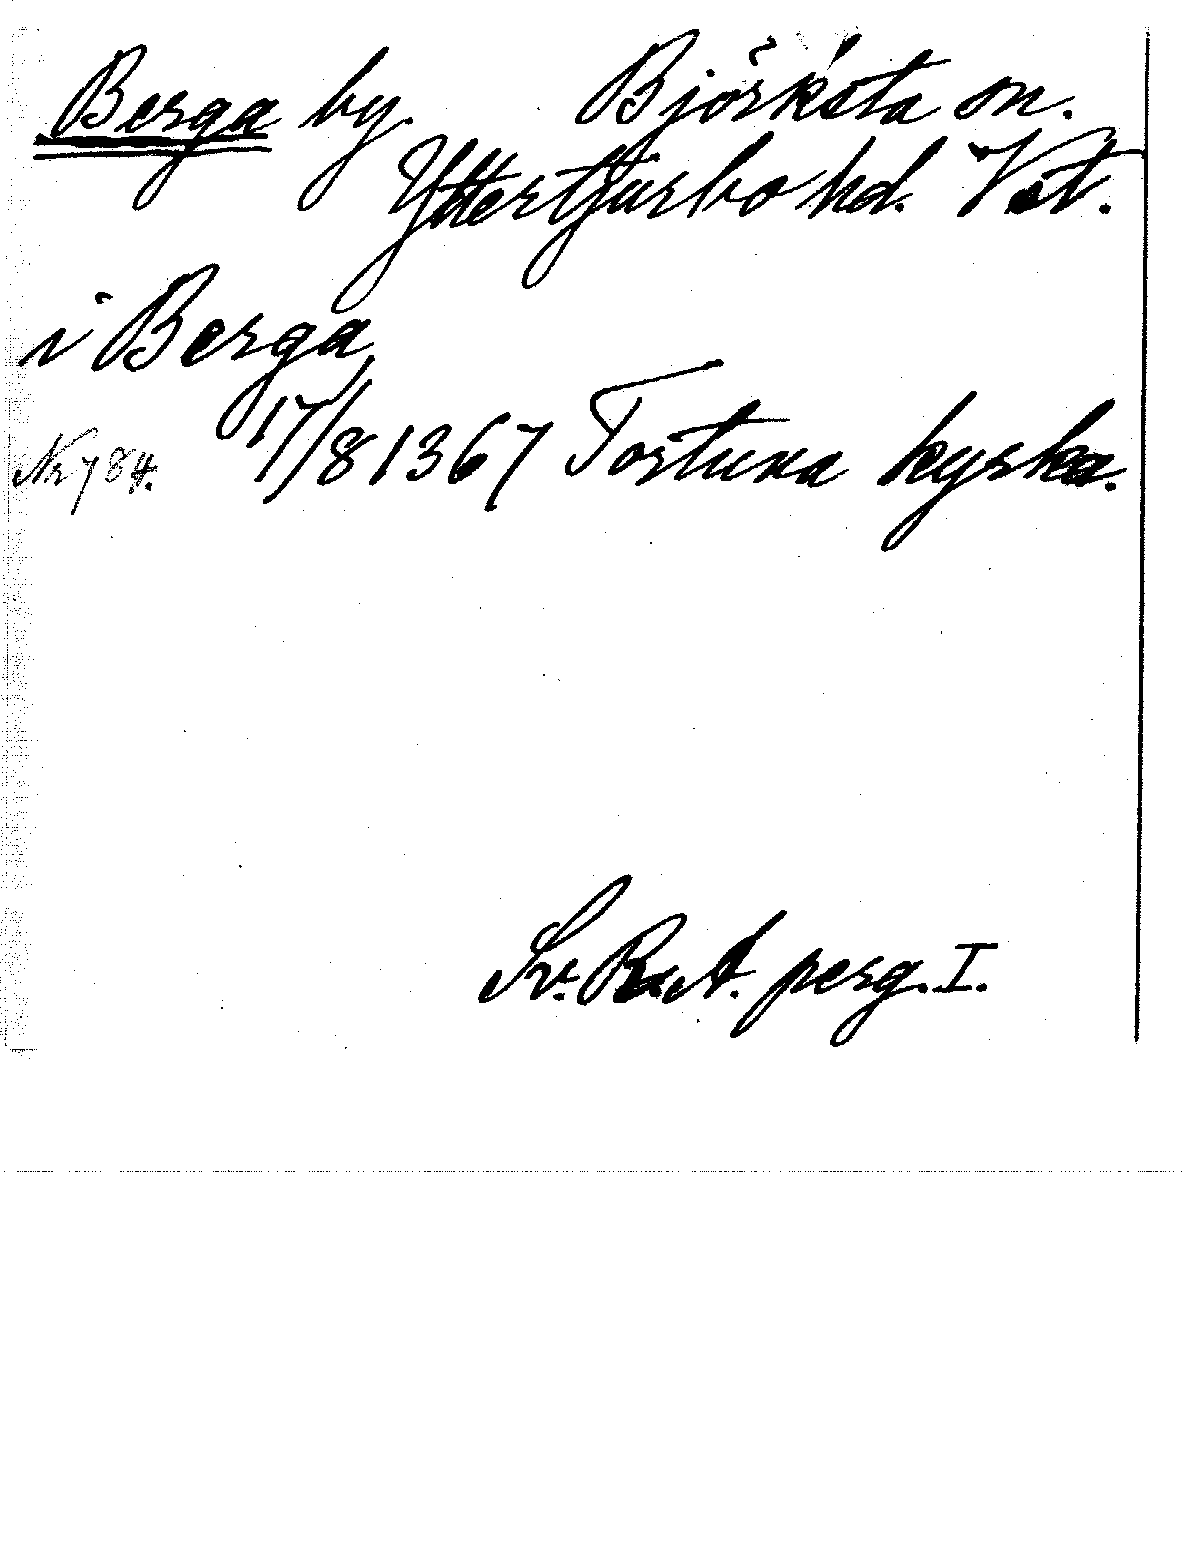 Berga by. Björksta sn.
Yttertjurbo hd. Vst.
i Berga
Nr 784. 17/8 1367 Tortuna kyrka.
Sv. R. A. perg. I.